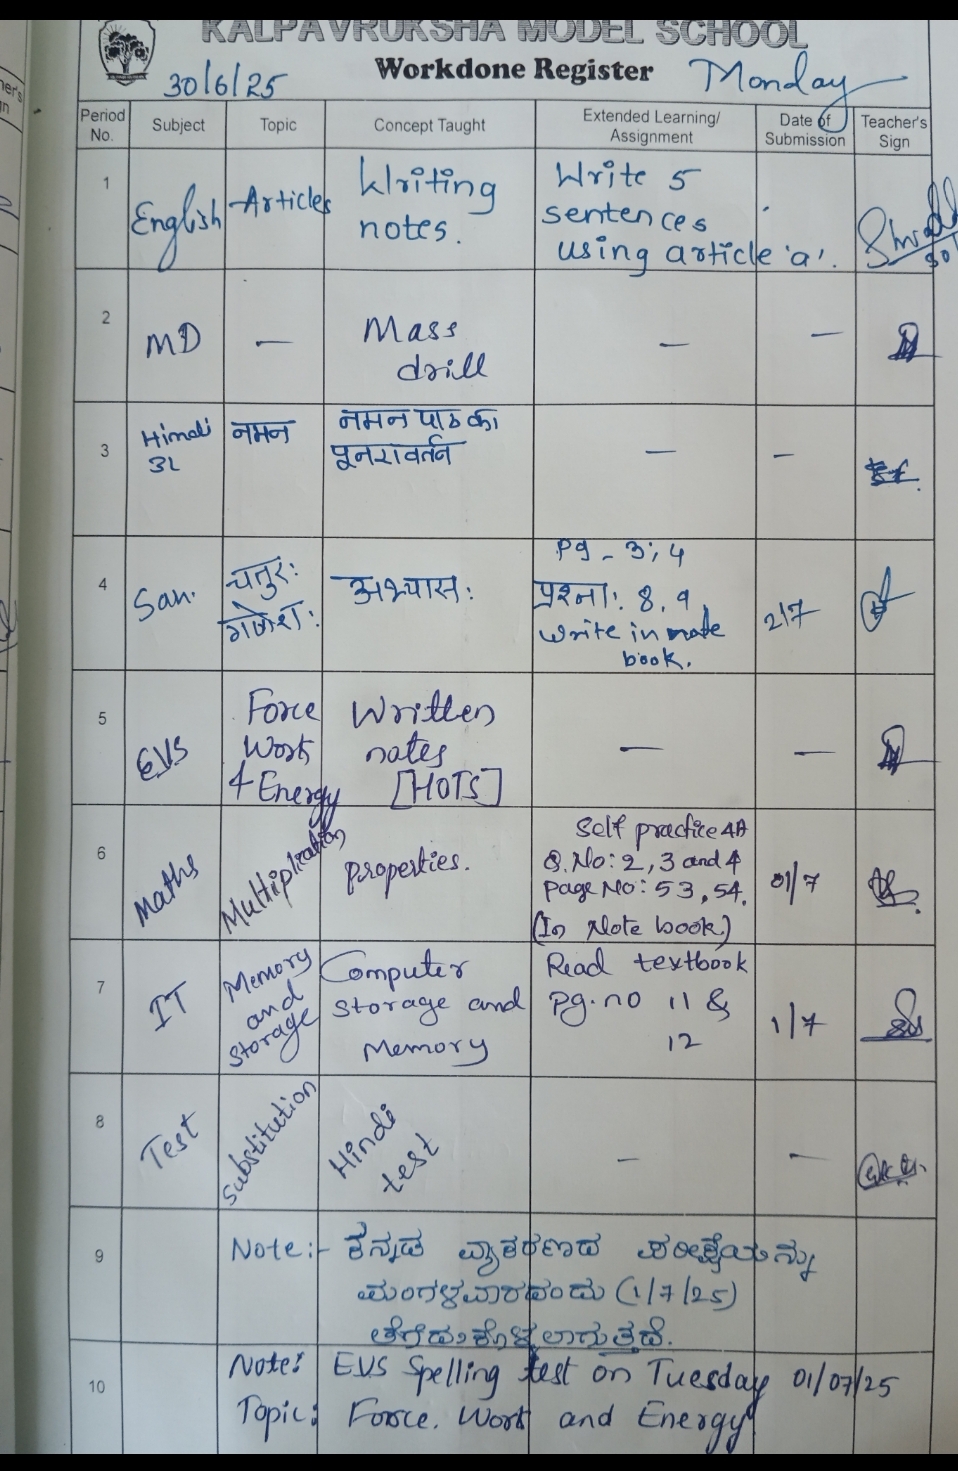 KALPAVRUKSHA MODEL SCHOOL
Workdone Register
30/6/25
Monday
Period No. Subject Topic Concept Taught Extended Learning/ Assignment Date of Submission Teacher's Sign
1 English Articles Writing notes. Write 5 sentences using article 'a'.
2 MD — Mass drill — —
3 Hindi 3L नमन नमन पाठ का पूनरावर्तन — —
4 San. चतुरः गणेशः अभ्यासः Pg - 3, 4 प्रश्नाः 8, 9, write in note book. 2/7
5 EVS Force Work & Energy Written notes [HOTS] — —
6 Maths Multiplication properties. Self practice 4A Q.No: 2, 3 and 4 page No: 53, 54. (In Note book) 01/7
7 IT Memory and storage Computer storage and Memory Read textbook pg. no 11 & 12 1/7
8 Test Substitution Hindi test — —
9 Note:- ಕನ್ನಡ ವ್ಯಾಕರಣದ ಪರೀಕ್ಷೆಯನ್ನು
ಮಂಗಳವಾರದಂದು (1/7/25)
ತೆಗೆದುಕೊಳ್ಳಲಾಗುತ್ತದೆ.
10 Note: EVS Spelling test on Tuesday 01/07/25
Topic: Force. Work and Energy